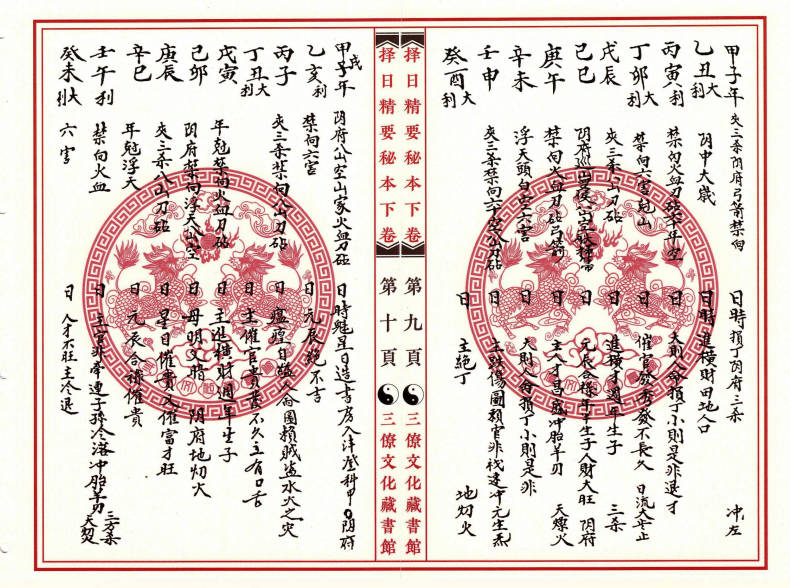 甲子年 夾三杀阴府弓箭禁向 日時损丁阴府三杀 冲左
乙丑大利 阴中大歲 日時進橫財田地人口
丙寅利 禁向火血刀砧六年空 日 大則人命损丁小則是非退才
丁卯大利 禁向六害尅山 日 催官發秀發不長久 日流太歲止
戊辰 夾三杀八山刀砧 日 進橫才週年生子 三杀
己巳 阴府 日 元辰合祿年中生子人財大旺 阴府
庚午 禁向火血刀砧弓箭 日 主人才 冲胎羊刃 天燥火
辛未 浮天頭白空六害 日 大則人命损丁小則是非
壬申 夾三杀禁向六害八山刀砧 日 主跌傷圖賴官非 冲元生炁
癸酉大利 日 主絶丁 地灱火
择日精要秘本下卷 第九頁 三僚文化藏書館
择日精要秘本下卷 第十頁 三僚文化藏書館
甲戌年 阴府八山空山家火血刀砧 日時魁星日造 房人 登科甲 阴府
乙亥利 禁向六害 日 元辰絶不吉
丙子 夾三杀禁向八山刀砧 日 瘟瘟自縊人命圖損賊盗水火之灾
丁丑大利 日 主催官貴 不久立有口舌
戊寅 年尅禁向火血刀砧 日 主進橫財週年生子
己卯 阴府禁向浮天八山空 日 母明父暗 阴府地灱火
庚辰 夾三杀八山刀砧 日 星日催貴又催富才旺
辛巳 年尅浮天 日 元辰合祿催貴
壬午利 禁向火血 日 主官非牽連子孫冷落冲胎羊刃 三杀
癸未大利 六害 日 人才不旺主冷退